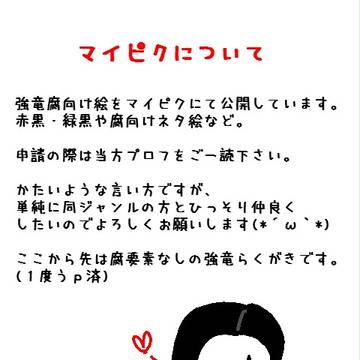 マイピクについて
強竜腐向け絵をマイピクにて公開しています。
赤黒・緑黒や腐向けネタ絵など。
申請の際は当方プロフをご一読下さい。
かたいような言い方ですが、
単純に同ジャンルの方とひっそり仲良く
したいのでよろしくお願いします(*´ω｀*)
ここから先は腐要素なしの強竜らくがきです。
(１度うｐ済)